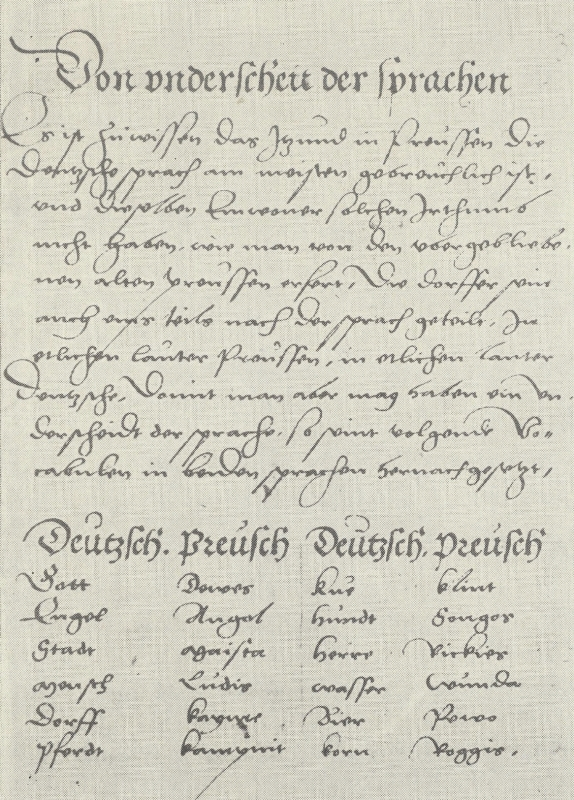 Von vnderscheit der sprachen
Es ist zuwissen das Itzund in Preussen die
Deutzsche sprach am meisten gebreuchlich ist,
vnd dieselben Einwoner solchen Irthumb
nicht haben, wie man von den vbergebliebe-
nen alten Preussen erfert, Die dorffer, sint
auch eins teils nach der sprach geteilt, In
etlichen lauter Preussen, in etlichen lauter
Deutzsche, Domit man aber mag haben ein vn-
derscheidt der sprache, so sint volgende Vo-
cabulen in beiden sprachen hernachgesetzt,
Deutzsch. Preusch Deutzsch. Preusch
Gott Dewes kue klint
Engel Angol hundt Songos
Stadt maista herre Rickies
mensch Ludis wasser Wunda
Dorff kayme Bier Powo
Pferdt kamnit korn Roggis.